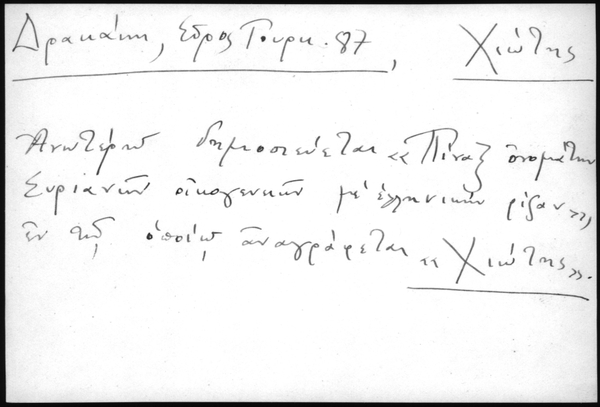 Δρακάκη, Σῦρος Τουρκ. 87, Χιώτης
Ἀνωτέρω δημοσιεύεται «Πίναξ ὀνομάτων
Συριανῶν οἰκογενειῶν μέ ἑλληνικήν ρίζαν»,
ἐν τῷ ὁποίῳ ἀναγράφεται «Χιώτης».